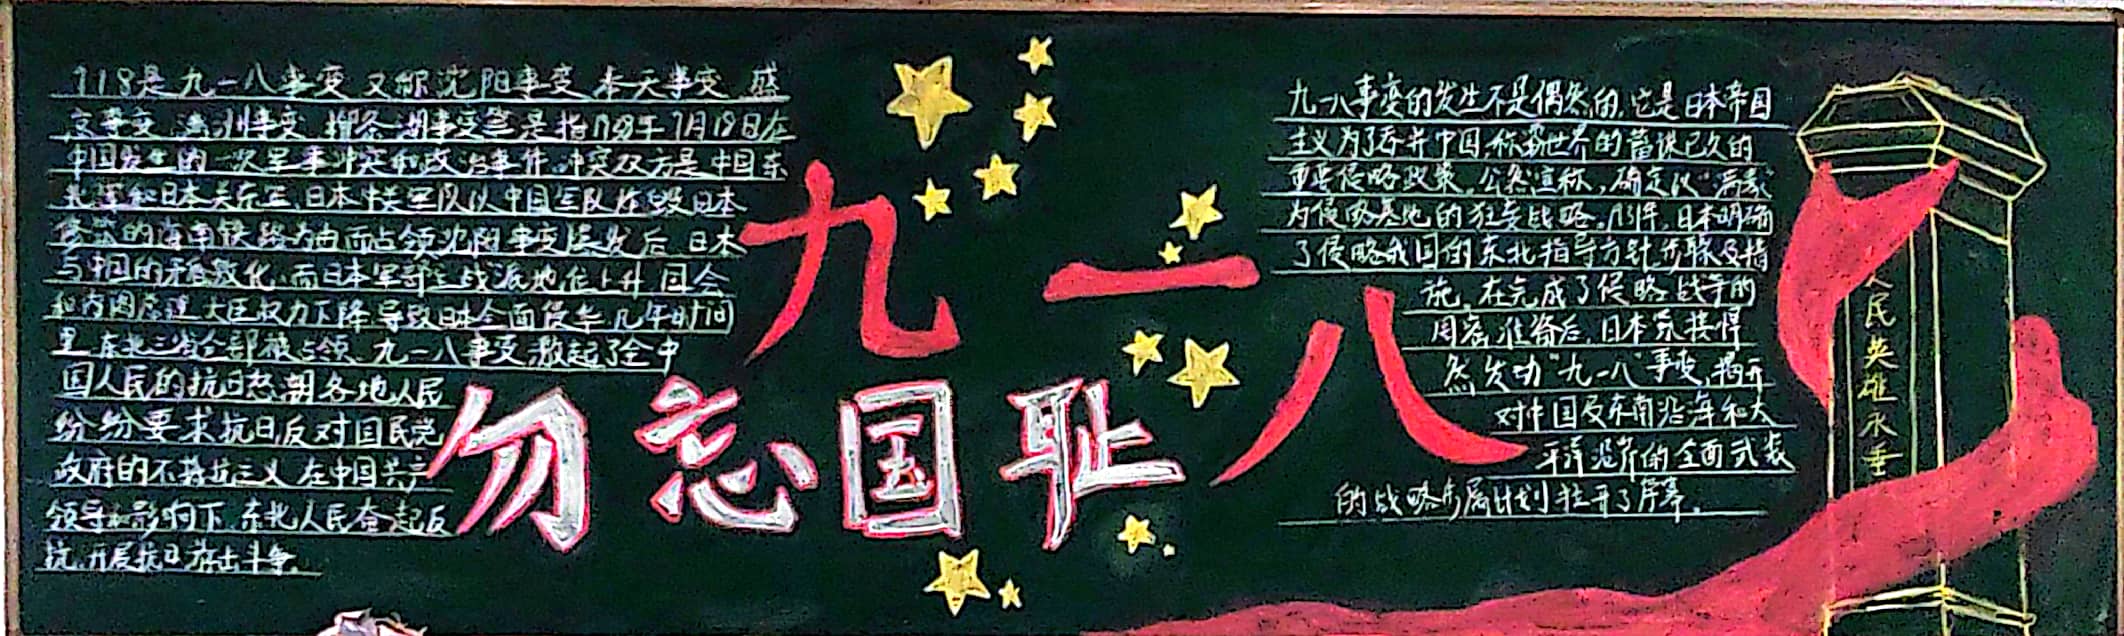 918是九一八事变又称沈阳事变 奉天事变 盛
京事变 满洲事变 柳条湖事变等是指1931年9月18日在
中国发生的一次军事冲突和政治事件.冲突双方是中国东
北军和日本关东军,日本中关军队以中国军队炸毁日本
修筑的南满铁路为由而占领沈阳事变爆发后 日本
与中国的矛盾激化,而日本军部主战派地位上升 国会
和内阁总理大臣权力下降导致日本全面侵华 几年时间
里 东北三省全部被占领 九一八事变激起了全中
国人民的抗日怒潮各地人民
纷纷要求抗日反对国民党
政府的不抵抗主义 在中国共产
领导和影响下,东北人民奋起反
抗.开展抗日游击斗争.
九一八
勿忘国耻
九一八事变的发生不是偶然的,它是日本帝国
主义为了吞并中国,称霸世界的蓄谋已久的
重要侵略政策。公然宣称,确定以"满蒙"
为侵略基地的狂妄战略。1931年,日本明确
了侵略我国的东北指导方针步骤及措
施。在完成了侵略战争的
周密准备后,日本
然发动"九一八"事变,揭开
对中国及东南沿海和太
平洋沿岸的全面武装
的战略 计划拉开了屏幕。
人民英雄永垂